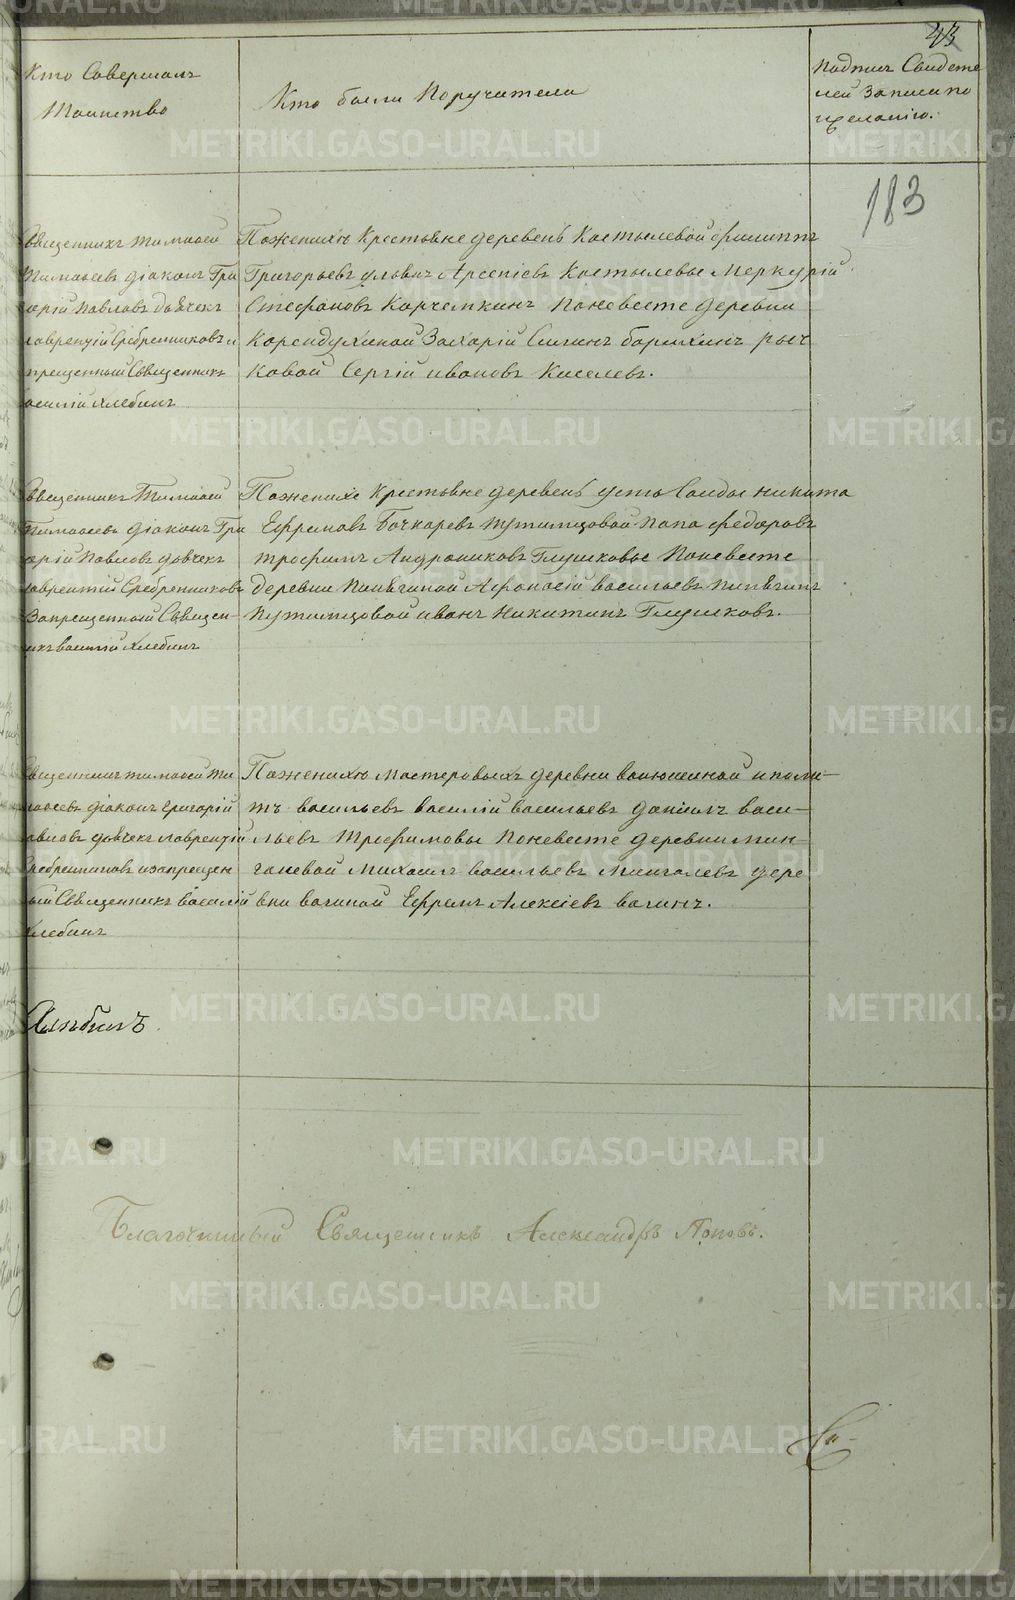 43
Кто Совершалъ
Таинство
Кто были Поручители
Подпись Свидете
лей Записи по
желанію.
183
Священникъ Тимофей
Тимофеевъ діаконъ Гри
горій Павловъ дьячекъ
лаврентій Сребренниковъ и
прещенный Священникъ
василій Хлебинъ
Поженихѣ Крестьяне деревень Костылевой филиппъ
Григорьевъ Арсеніевъ Костылевы Меркурій
Стефановъ Корчемкинъ Поневесте деревни
Захарій рыч
ковой Сергій ивановъ Киселевъ.
Священникъ Тимофей
Тимофеевъ діаконъ Гри
горій Павловъ дьячекъ
лаврентій Сребренниковъ
Запрещенный Священ-
икъ василій Хлебинъ
Поженихе Крестьяне деревень усть никита
Ефремовъ Бочкаревъ федоровъ
трофимъ Андрониковъ Глушковы Поневесте
деревни Афонасій васильевъ
иванъ Никитинъ Глушковъ.
Священникъ тимофей Ти
мофеевъ діаконъ Григорій
павловъ дьячекъ лаврентій
Сребренниковъ изапрещен
ый Священникъ василій
Хлебинъ
Поженихѣ мастеровыхъ деревни иполи-
тъ васильевъ василій васильевъ даніилъ васи-
льевъ Трофимовы Поневесте деревни мин-
галевой михаилъ васильевъ мингалевъ дере
вни вагиной Ефремъ Алексіевъ вагинъ.
Хлѣбинъ
Благочинный Священникъ Александръ Поповъ.